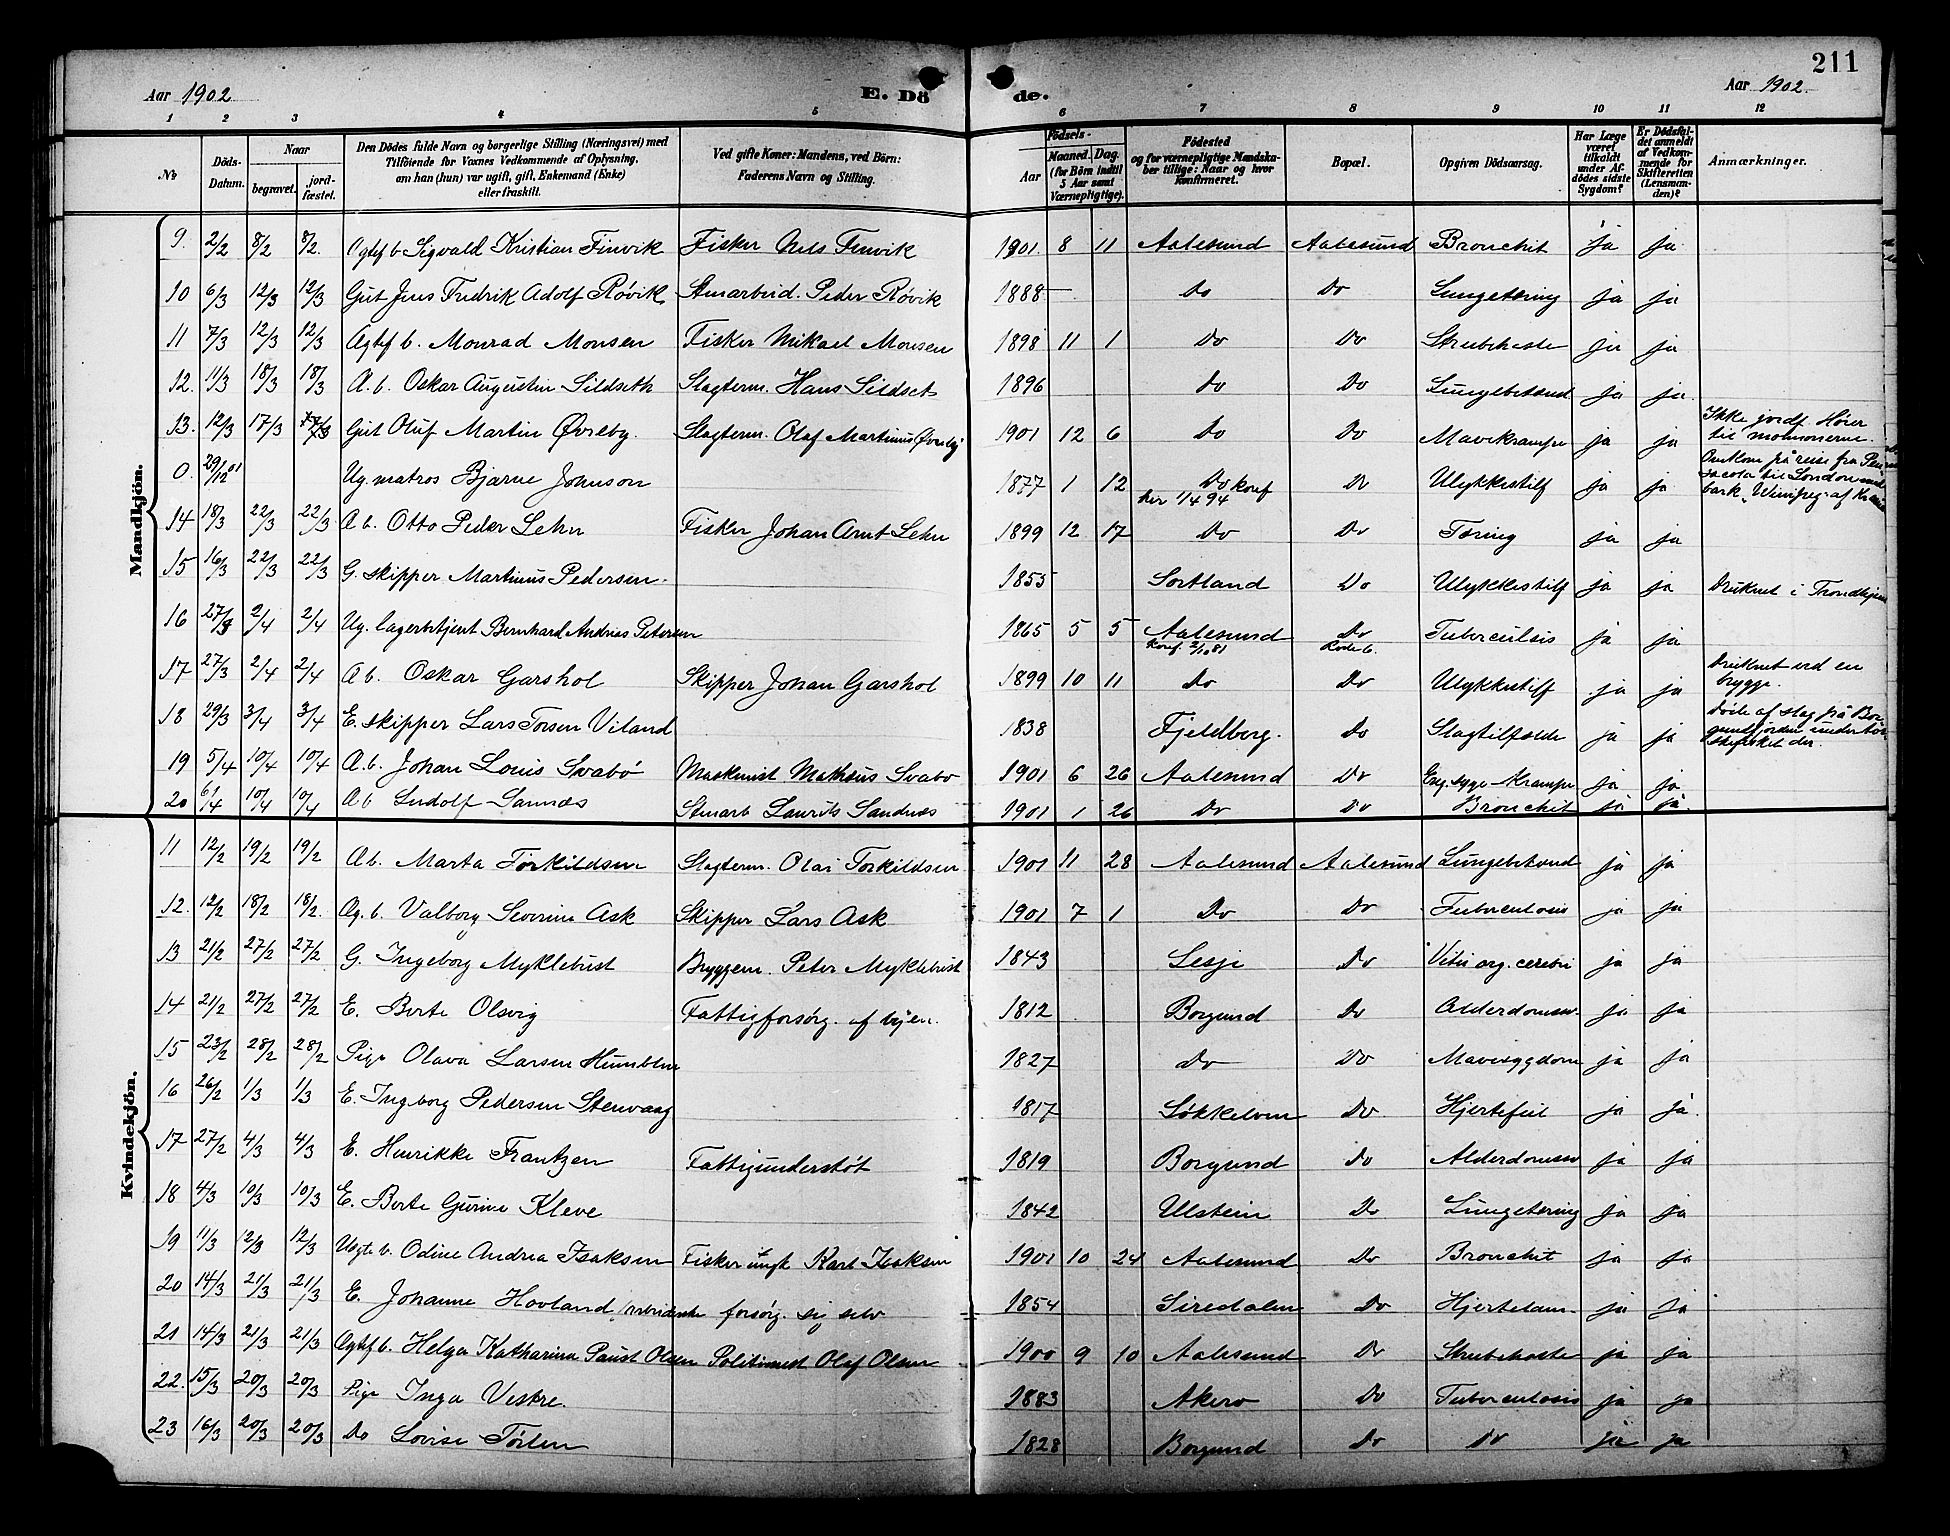 211
Aar 1902 E. Dö de. Aar 1902.
1 2 3 4 5 6 7 8 9 10 11 12
No
Döds-Datum.
Naar begravet. jord-fæstet.
Den Dödes fulde Navn og borgerlige Stilling (Næringsvei) med Tilföiende for Voxnes Vedkommende af Oplysning, om han (hun) var ugift, gift, Enkemand (Enke) eller fraskilt.
Ved gifte Koner: Mandens, ved Börn: Faderens Navn og Stilling.
Födsels- Aar Maaned. Dag. (for Börn indtil 5 Aar samt Værnepligtige).
Födested og for værnepligtige Mandskaber tillige: Naar og hvor Konfirmeret.
Bopæl.
Opgiven Dödsaarsag.
Har Læge været tilkaldt under Afdödes sidste Sygdom?
Er Dödsfaldet anmeldt af Vedkommende for Skifteretten (Lensmanden)?
Anmærkninger.
Mandkjön.
9. 2/2 8/2 8/2. Ægtef b Sigvald Kristian Finvik Fisker Nils Finvik 1901. 8 11 Aalesund Aalesund Bronchit ja ja
10 6/3 12/3 12/3 Gut Jens Fredrik Adolf Røvik Stenarbeid. Peder Røvik 1888 Do Do Lungetæring ja ja
11 7/3 12/3 12/3 Ægtef b. Monrad Monsen Fisker Mikael Monsen 1898 11 1 Do Do Strubehoste ja ja
12. 11/3 18/3 18/3 Æ. b. Oskar Augustin Sildseth Slagterm. Hans Sildset 1896 Do Do Lungebetænd ja ja.
13. 12/3 17/3 17/3 Gut Oluf Martin Øvreby. Slagterm. Olaf Martinus Øvreby 1901 12 6 Do Do Mavekrampe ja ja Ikke jordf. Hører til mormonerne.
0. 29/12 01 Ug. matros Bjarne Johnson 1877 1 12 Do konf her 1/4 94 Do Ulykkestilf ja ja Omkom på reise fra Pensacola til London med bark "Winipeg" af
14 18/3 22/3 22/3 Æ b. Otto Peder Lehn Fisker Johan Arnt Lehn 1899 12 17 Do Do Tæring ja ja
15 16/3 22/3 22/3 G. skipper Martinus Pedersen. 1855 Sortland Do Ulykkestilf ja ja Druknet i Trondhjem
16 27/3 2/4 2/4 Ug. lagerbetjent Bernhard Andreas Petersen 1865 5 5 Aalesund Konf. 2/10 81 Do Rode 6. Tuberculsis ja ja
17 27/3 2/4 2/4 Æ b. Oskar Garshol Skipper Johan Garshol 1899 10 11 Do Do Ulykkestilf ja ja Druknet ved en brygge.
18 29/3 3/4 3/4 E. skipper Lars Torsen Viland 1838 Fjeldberg. Do Slagtilfælde ja ja Døde af slag på Borgundfjorden under torskefisket der.
19 5/4 10/4 10/4 Æ. b. Johan Louis Svabø Maskinist Matheus Svabø 1901 6 26 Aalesund Do Eng. syge-Krampe ja ja
20 6/4 10/4 10/4 Æ b Ludolf Sannæs Stenarb Laurits Sandnæs 1901 1 26 Do Do Bronchit ja ja.
Kvindekjön.
11 12/2 19/2 19/2 Æ b. Marta Torkildsen Slagterm. Olai Torkildsen 1901 11 28 Aalesund Aalesund Lungebetænd ja ja
12. 12/2 18/2 18/2. Æg. b. Valborg Severine Ask Skipper Lars Ask 1901 7 1 Do Do Tuberculosis ja ja
13 21/2 27/2 27/2 G. Ingeborg Myklebust Bryggem. Peter Myklebust 1843 Lesje Do Vitii org. cerebri ja ja
14 21/2 27/2 27/2 E. Berte Olsvig Fattigforsørg. af byen. 1812 Borgund Do Alderdomssv ja ja
15 23/2 28/2 28/2 Pige Olava Larsen Humblen 1827 Do Do Mavesygdom ja ja
16 26/2 1/3 1/3 E. Ingeborg Pedersen Stenvaag 1817 Søkkelven Do Hjertefeil ja ja.
17 27/2 4/3 4/3 E. Henrikke Frantzen Fattigunderstøt 1819 Borgund Do Alderdomssv ja ja
18 4/3 10/3 10/3 E. Berte Gurine Kleve 1842 Ulstein Do Lungetæring ja ja
19 11/3 12/3 12/3 Uægte b. Odine Andrea Isaksen Fisker ungk Karl Isaksen 1901 10 24 Aalesund Do Bronchit ja ja
20 14/3 21/3 21/3 E. Johanne Hovland, arbeiderske forsørg. sig selv 1854 Siredalen Do Hjertelam- ja ja
21 14/3 21/3 21/3 Ægtef b. Helga Katharina Paust Olsen Politimest Olaf Olsen 1900 9 10 Aalesund Do Strubehoste ja ja
22. 15/3 20/3 20/3 Pige Inga Vestre. 1883 Akerø Do Tuberculosis ja ja
23 16/3 20/3 20/3 Do Lovise Törlen 1828 Borgund Do Do ja ja